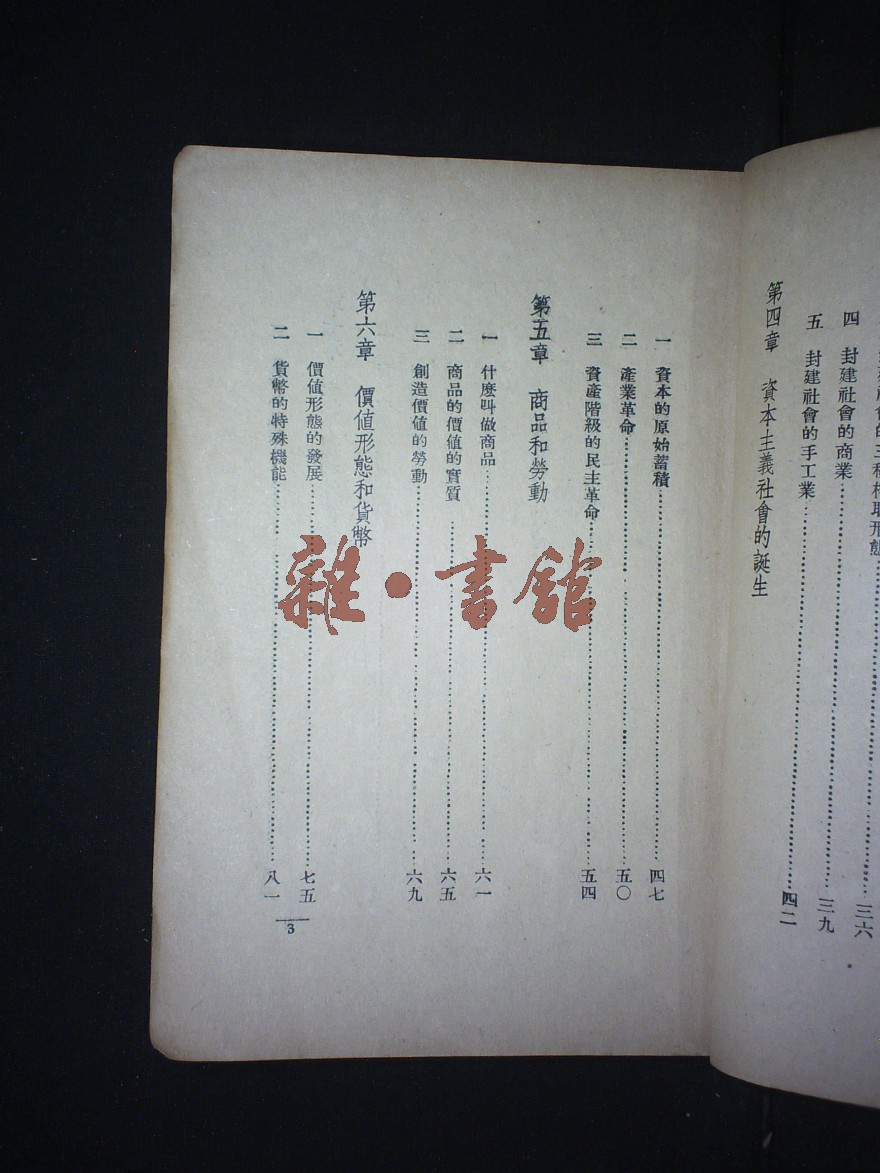 形態……三六
四 封建社會的商業……三九
五 封建社會的手工業……四二
第四章 資本主義社會的誕生
一 資本的原始蓄積……四七
二 產業革命……五〇
三 資產階級的民主革命……五四
第五章 商品和勞動
一 什麼叫做商品……六一
二 商品的價值的實質……六五
三 創造價值的勞動……六九
第六章 價值形態和貨幣
一 價值形態的發展……七五
二 貨幣的特殊機能……八一
3
雜·書館